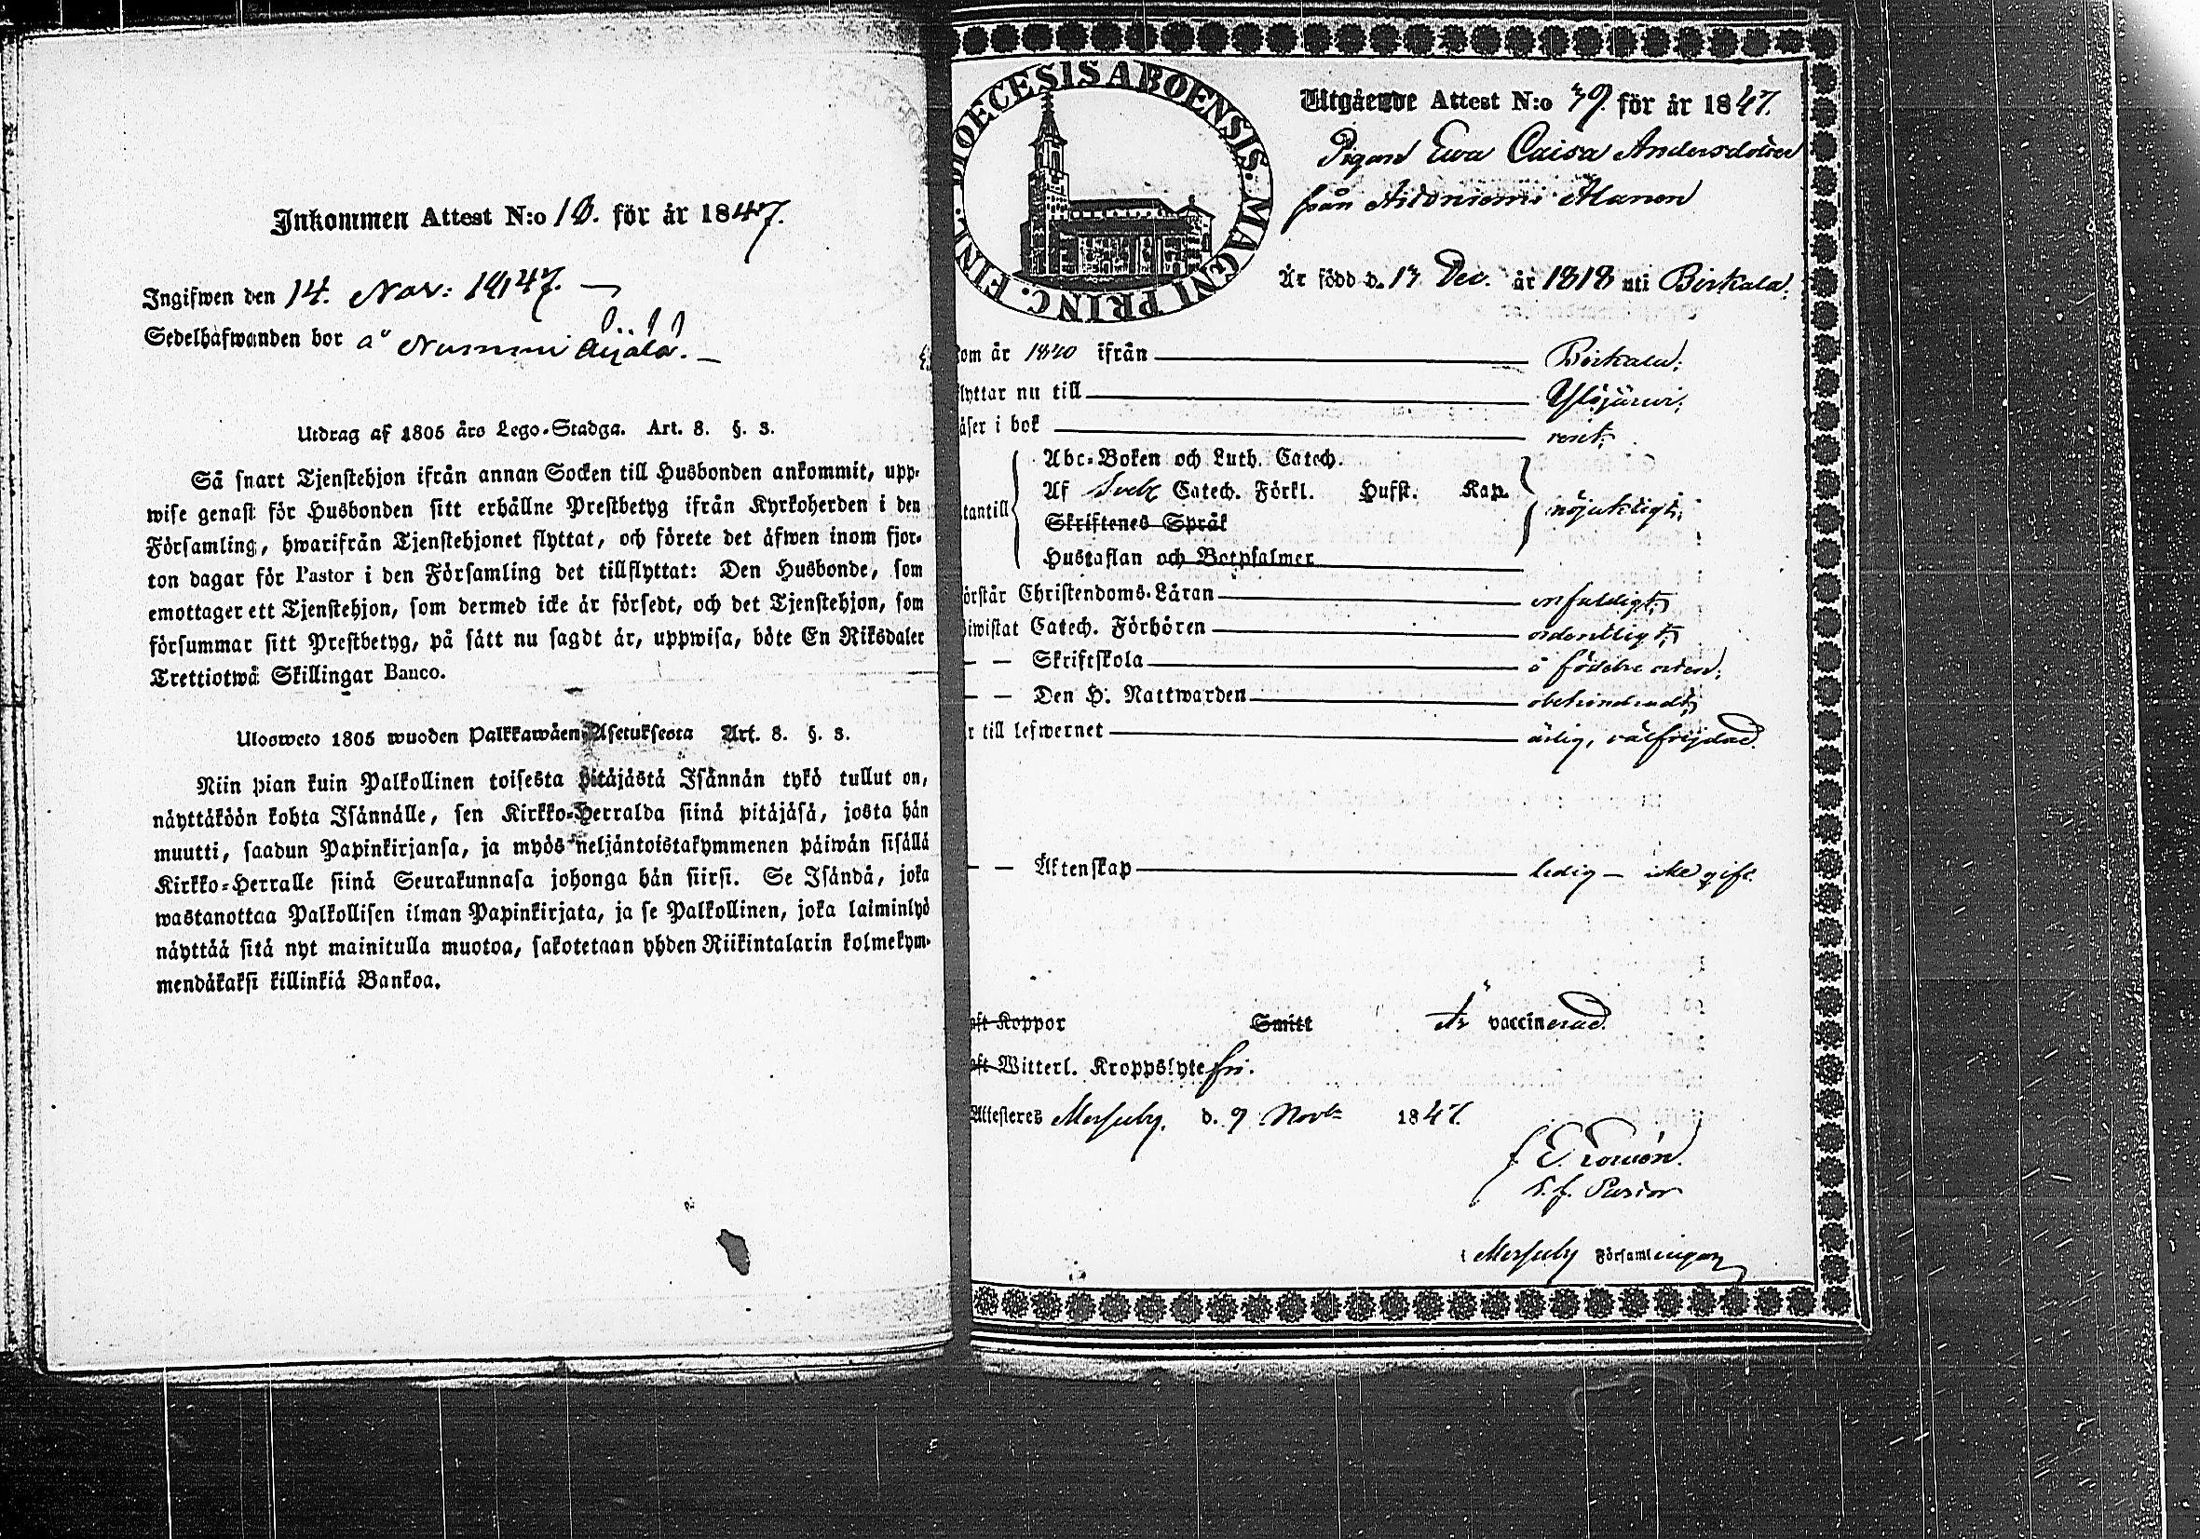 Inkommen Attest N:o 10. för år 1847.
Ingifwen den 14. Nov: 1847. —
Sedelhafwanden bor å Nummi Äijälä. —
Utdrag af 1805 års Lego-Stadga. Art. 8. §. 3.
Så snart Tjenstehjon ifrån annan Socken till Husbonden ankommit, upp-
wise genast för Husbonden sitt erhållne Prestbetyg ifrån Kyrkoherden i den
Församling, hwarifrån Tjenstehjonet flyttat, och förete det äfwen inom fjor-
ton dagar för Pastor i den Församling det tillflyttat: Den Husbonde, som
emottager ett Tjenstehjon, som dermed icke är försedt, och det Tjenstehjon, som
försummar sitt Prestbetyg, på sätt nu sagdt är, uppwisa, böte En Riksdaler
Trettiotwå Skillingar Banco.
Ulosweto 1805 wuoden Palkkawäen Asetuksesta Art. 8. §. 3.
Niin pian kuin Palkollinen toisesta pitäjästä Isännän tykö tullut on,
näyttäköön kohta Isännälle, sen Kirkko-Herralda siinä pitäjäsä, josta hän
muutti, saadun Papinkirjansa, ja myös neljäntoistakymmenen päiwän sisällä
Kirkko-Herralle siinä Seurakunnasa johonga hän siirsi. Se Isändä, joka
wastanottaa Palkollisen ilman Papinkirjata, ja se Palkollinen, joka laiminlyö
näyttää sitä nyt mainitulla muotoa, sakotetaan yhden Riikintalarin kolmekym-
mendäkaksi killinkiä Bankoa.
DIOECESIS ABOENSIS. MAGNI PRINC. FINL.
Utgående Attest N:o 79. för år 1847.
Pigan Ewa Caisa Andersdotter
från Alanen
Är född d. 13 Dec. år 1818 uti Birkala;
kom år 1840 ifrån Birkala;
flyttar nu till Ylöjärwi;
läser i bok rent;
Abc-Boken och Luth. Catech.
Af Sveb Catech. Förkl. Husst. Kap.
utantill nöjaktigt;
Skriftenes Språk
Hustaflan och Botpsalmer
förstår Christendoms-Läran enfaldigt;
biwistat Catech. Förhören ordentligt;
— — Skriftskola i födelse orten;
— — Den H. Nattwarden obehindradt;
är till lefwernet ärlig, välfrejdad.
— — Äktenskap ledig — icke gift.
haft Koppor Smitt Är vaccinerad.
haft Witterl. Kroppslyte fri.
Attesteres Messuby, d. 9 Nov: 1847.
v. f. Pastor
i Messuby Församlingar